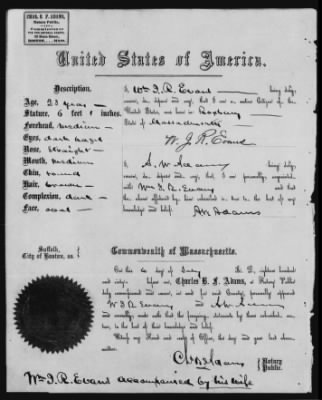 CHAS. B. F. ADAMS,
Notary Public,
Commissioner
BOSTON, MASS.
United States of America.
Description.
Age, 23 years
Stature, 6 feet inches
Forehead, medium
Eyes, dark hazel
Nose, straight
Mouth, medium
Chin, round
Hair,
Complexion, dark
Face, oval
I, Wm I. R. Evans being duly
sworn, do depose and say, that I am a native Citizen of the
United States, was born in Roxbury
State of Massachusetts
W. I. R. Evans
I, A. W. Adams being duly
sworn, do depose and say, that I am personally acquainted
with Wm I. R. Evans and that
the above affidavit by him subscribed is true to the best of my
knowledge and belief. A W Adams
Suffolk,
City of Boston, ss.
Commonwealth of Massachusetts.
On this day of A. D. eighteen hundred
and sixty- before Charles B. F. Adams, a Notary Public
duly commissioned and sworn, in and for said County, personally appeared
W I R Evans and A W Adams
and severally made oath that the foregoing statements by them subscribed are
true, to the best of their knowledge and belief.
Witness my Hand and Seal of Office, the day and year last above
written.
Notary
Public.
Wm I. R. Evans accompanied by his wife